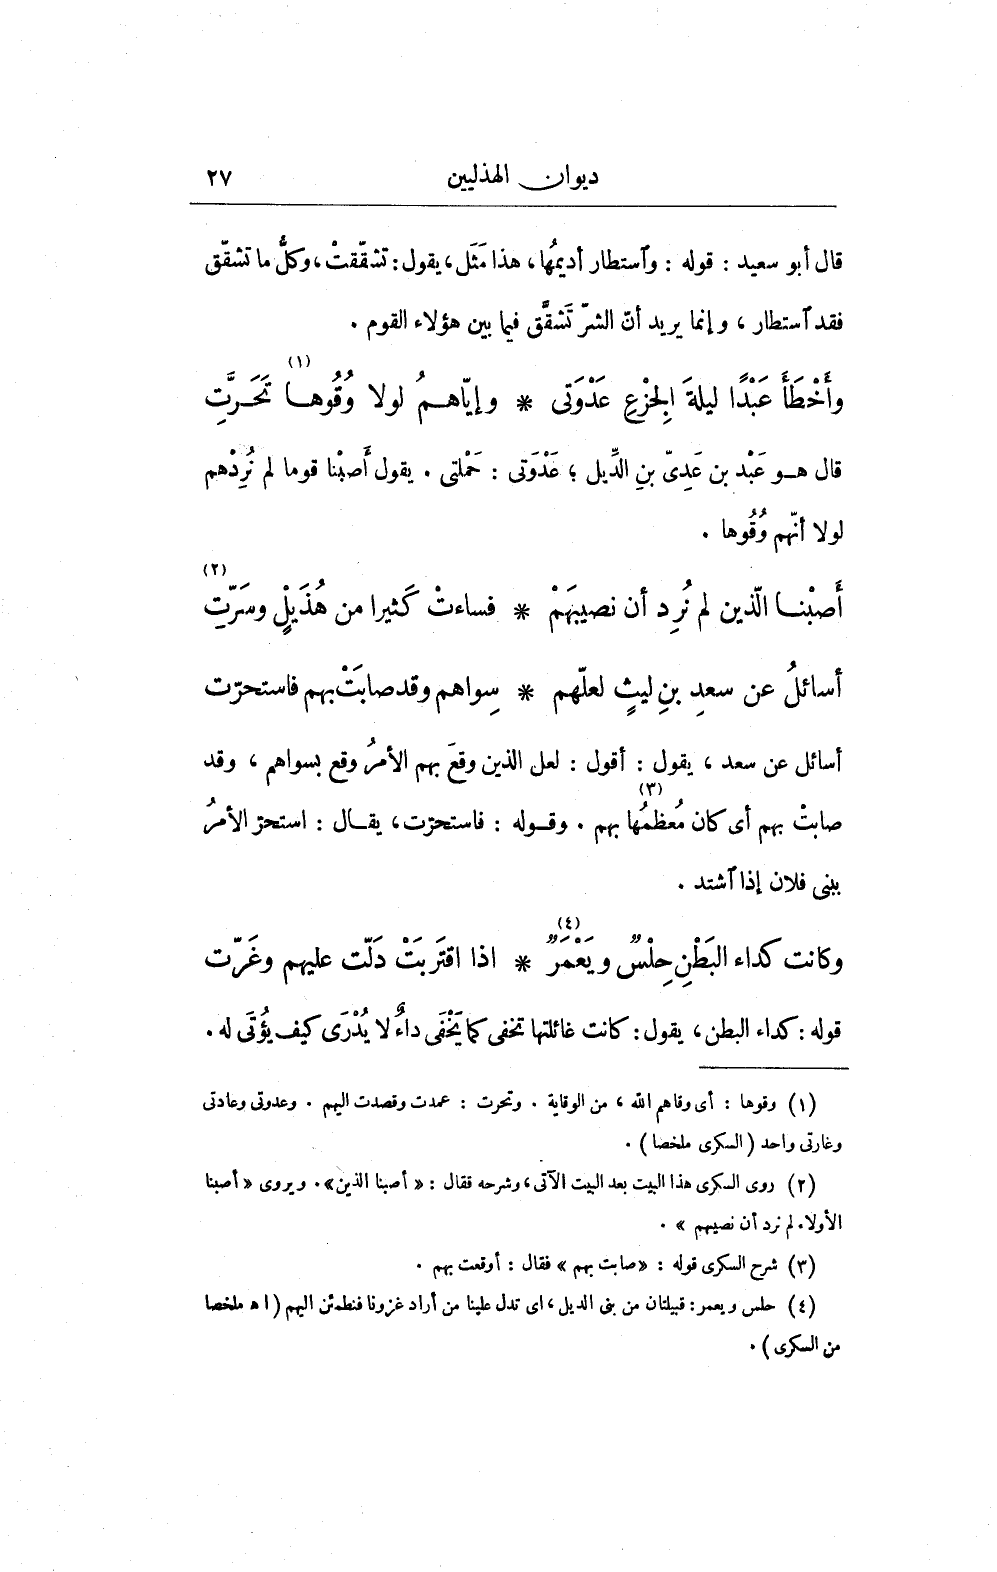 ديوان الهذليين ٢٧
قال أبو سعيد : قوله : وٱستطار أديمُها، هذا مَثَل، يقول: تشقّقتْ، وكلُّ ما تشقّق
فقد ٱستطار ، وإنما يريد أنّ الشرّ تَشقَّق فيما بين هؤلاء القوم .
وأَخْطَأَ عَبْدًا ليلةَ الِجزْعِ عَدْوَتى * وإيّاهـمُ لولا وُقُوهـا (١) تَحَـرَّتِ
قال هـو عَبْد بن عَدِىّ بنِ الدِّيل ؛ عَدْوَتى : حَمْلتى . يقول أَصبْنا قوما لم نُرِدْهم
لولا أنّهم وُقُوها .
أَصبْنـا الّذين لم نُرِد أن نصيبَهَمْ * فساءتْ كَثيرا من هُذَيلٍ وسَرّتِ (٢)
أسائلُ عن سعدِ بنِ ليثٍ لعلّهم * سِواهم وقد صابَتْ بهم فاستحرّت
أسائل عن سعد ، يقول : أقول : لعل الذين وقعَ بهم الأمرُ وقع بسواهم ، وقد
صابتْ بهم أى كان مُعظمُها (٣) بهم . وقـوله : فاستحرّت، يقـال : استحرّ الأمرُ
ببنى فلان إذا ٱشتد .
وكانت كداء البَطْنِ حِلْسٌ ويَعْمَرٌ (٤) * اذا اقتَربَتْ دَلّت عليهم وغَرّت
قوله : كداء البطن، يقول : كانت غائلتها تخفى كما يَخْفَى داءٌ لا يُدْرَى كيف يُؤتَى له .
(١) وقوها : أى وقاهم الله ، من الوقاية . وتحرت : عمدت وقصدت اليهم . وعدوتى وعادتى
وغارتى واحد (السكرى ملخصا) .
(٢) روى السكرى هذا البيت بعد البيت الآتى، وشرحه فقال : « أصبنا الذين» . ويروى « أصبنا
الأولاء لم نرد أن نصيبهم » .
(٣) شرح السكرى قوله : «صابت بهم» فقال : أوقعت بهم .
(٤) حلس ويعمر: قبيلتان من بنى الديل، اى تدل علينا من أراد غزونا فنطمئن اليهم (اﻫ ملخصا
من السكرى) .